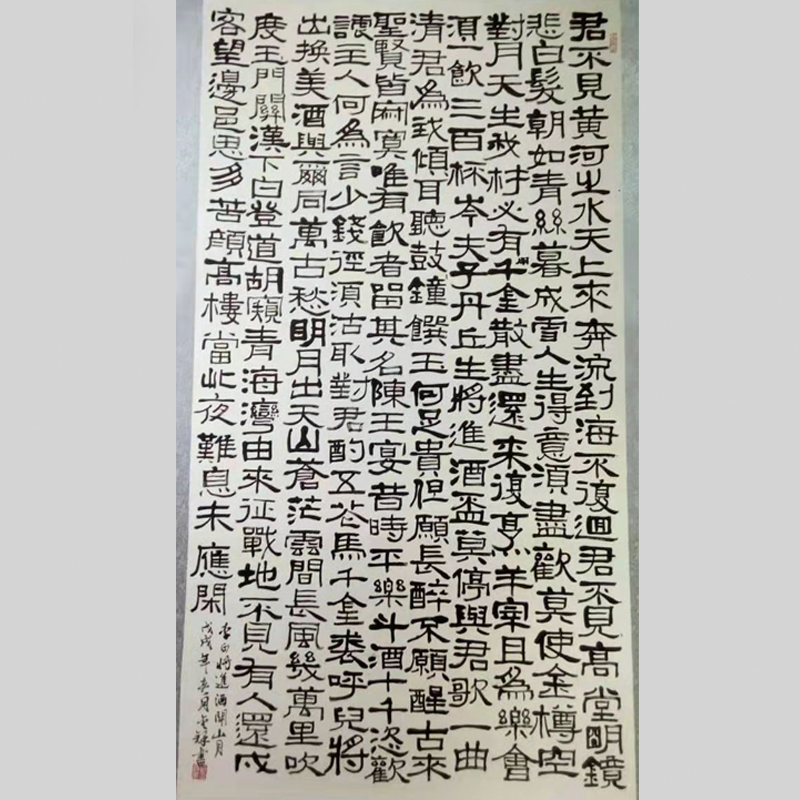 君不見黃河之水天上來奔流到海不復迴君不見高堂明鏡
悲白髮朝如青絲暮成雪人生得意須盡歡莫使金樽空
對月天生我材必有用千金散盡還来復烹羊宰且為樂會
須一飲三百杯岑夫子丹丘生將進酒盃莫停與君歌一曲
清君為我傾耳聽鼓鐘饌玉何足貴但願長醉不願醒古來
聖賢皆寂寞唯有飲者留其名陳王宴昔時平樂斗酒十千恣歡
謔主人何為言少錢徑須沽取對君酌五花馬千金裘呼兒將
出換美酒與爾同萬古愁明月出天山蒼茫雲間長風幾萬里吹
度玉門關漢下白登道胡窺青海灣由來征戰地不見有人還戍
客望邊邑思多苦顏高樓當此夜難息未應閑
李白將進酒關山月
戊戌年 月 書